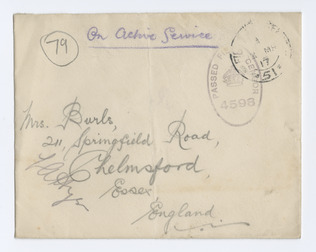 79
On Active Service
PASSED
4598
17
51
Mrs. Burls,
211, Springfield Road,
Chelmsford,
Essex
England.